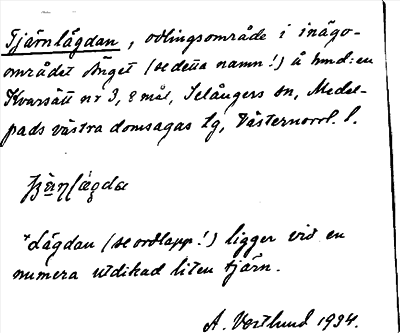 Tjärnlågdan, odlingsområde i inägo-
området Änget (se detta namn!) å hmd:en
Kvarsätt nr 3, 2 mål, Selångers sn, Medel-
pads västra domsagas lg, Västernorrl. l.
*Lågdan (se ordlapp!) ligger vid en
numera utdikad liten tjärn.
A. Vestlund 1934.